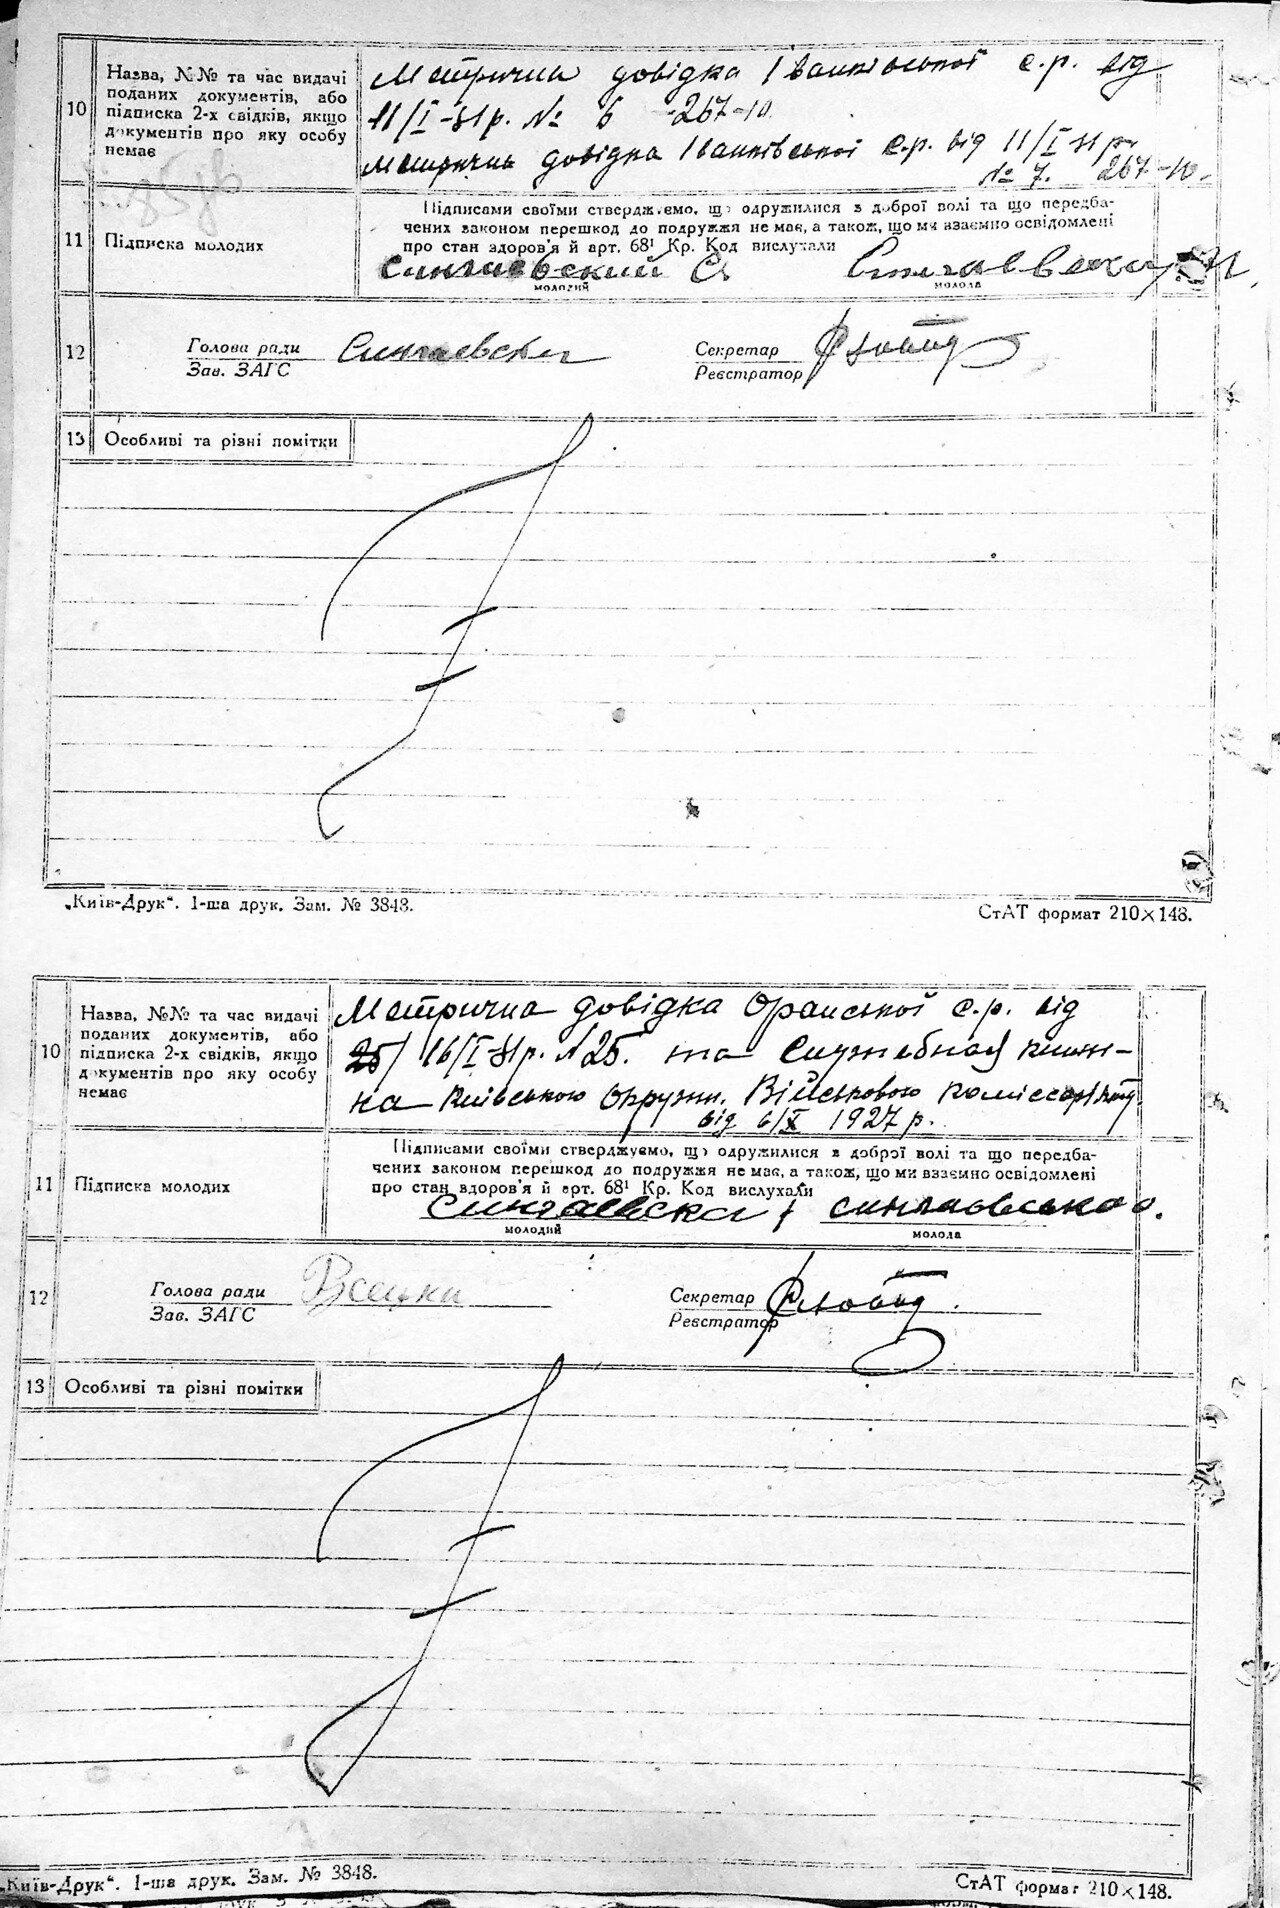 10
Назва, №№ та час видачі
поданих документів, або
підписка 2-х свідків, якщо
документів про яку особу
немає
Метрична довідка Іванківської с.р. від
11/I-31р. № 6 -267-10.
Метрична довідка Іванківської с.р. від 11/I-31р.
№ 7. 267-10.
11
Підписка молодих
Підписами своїми стверджуємо, що одружилися з доброї волі та що передба-
чених законом перешкод до подружжя не має, а також, що ми взаємно освідомлені
про стан здоров'я й арт. 68¹ Кр. Код вислухали
Сингаевский Сингаевская
молодий молода
12
Голова ради Сингаевский Секретар
Зав. ЗАГС Реєстратор
13 Особливі та різні помітки
„Київ-Друк“. І-ша друк. Зам. № 3848. СтАТ формат 210×148.
10
Назва, №№ та час видачі
поданих документів, або
підписка 2-х свідків, якщо
документів про яку особу
немає
Метрична довідка Оранської с.р. від
25/ 16/I-31р. №25. та Служебная книж-
на Київського Окружн. Військового Комісаріяту
від 6/X 1927 р.
11
Підписка молодих
Підписами своїми стверджуємо, що одружилися з доброї волі та що передба-
чених законом перешкод до подружжя не має, а також, що ми взаємно освідомлені
про стан здоров'я й арт. 68¹ Кр. Код вислухали
молодий молода
12
Голова ради Секретар
Зав. ЗАГС Реєстратор
13 Особливі та різні помітки
„Київ-Друк“. І-ша друк. Зам. № 3848. СтАТ формат 210×148.